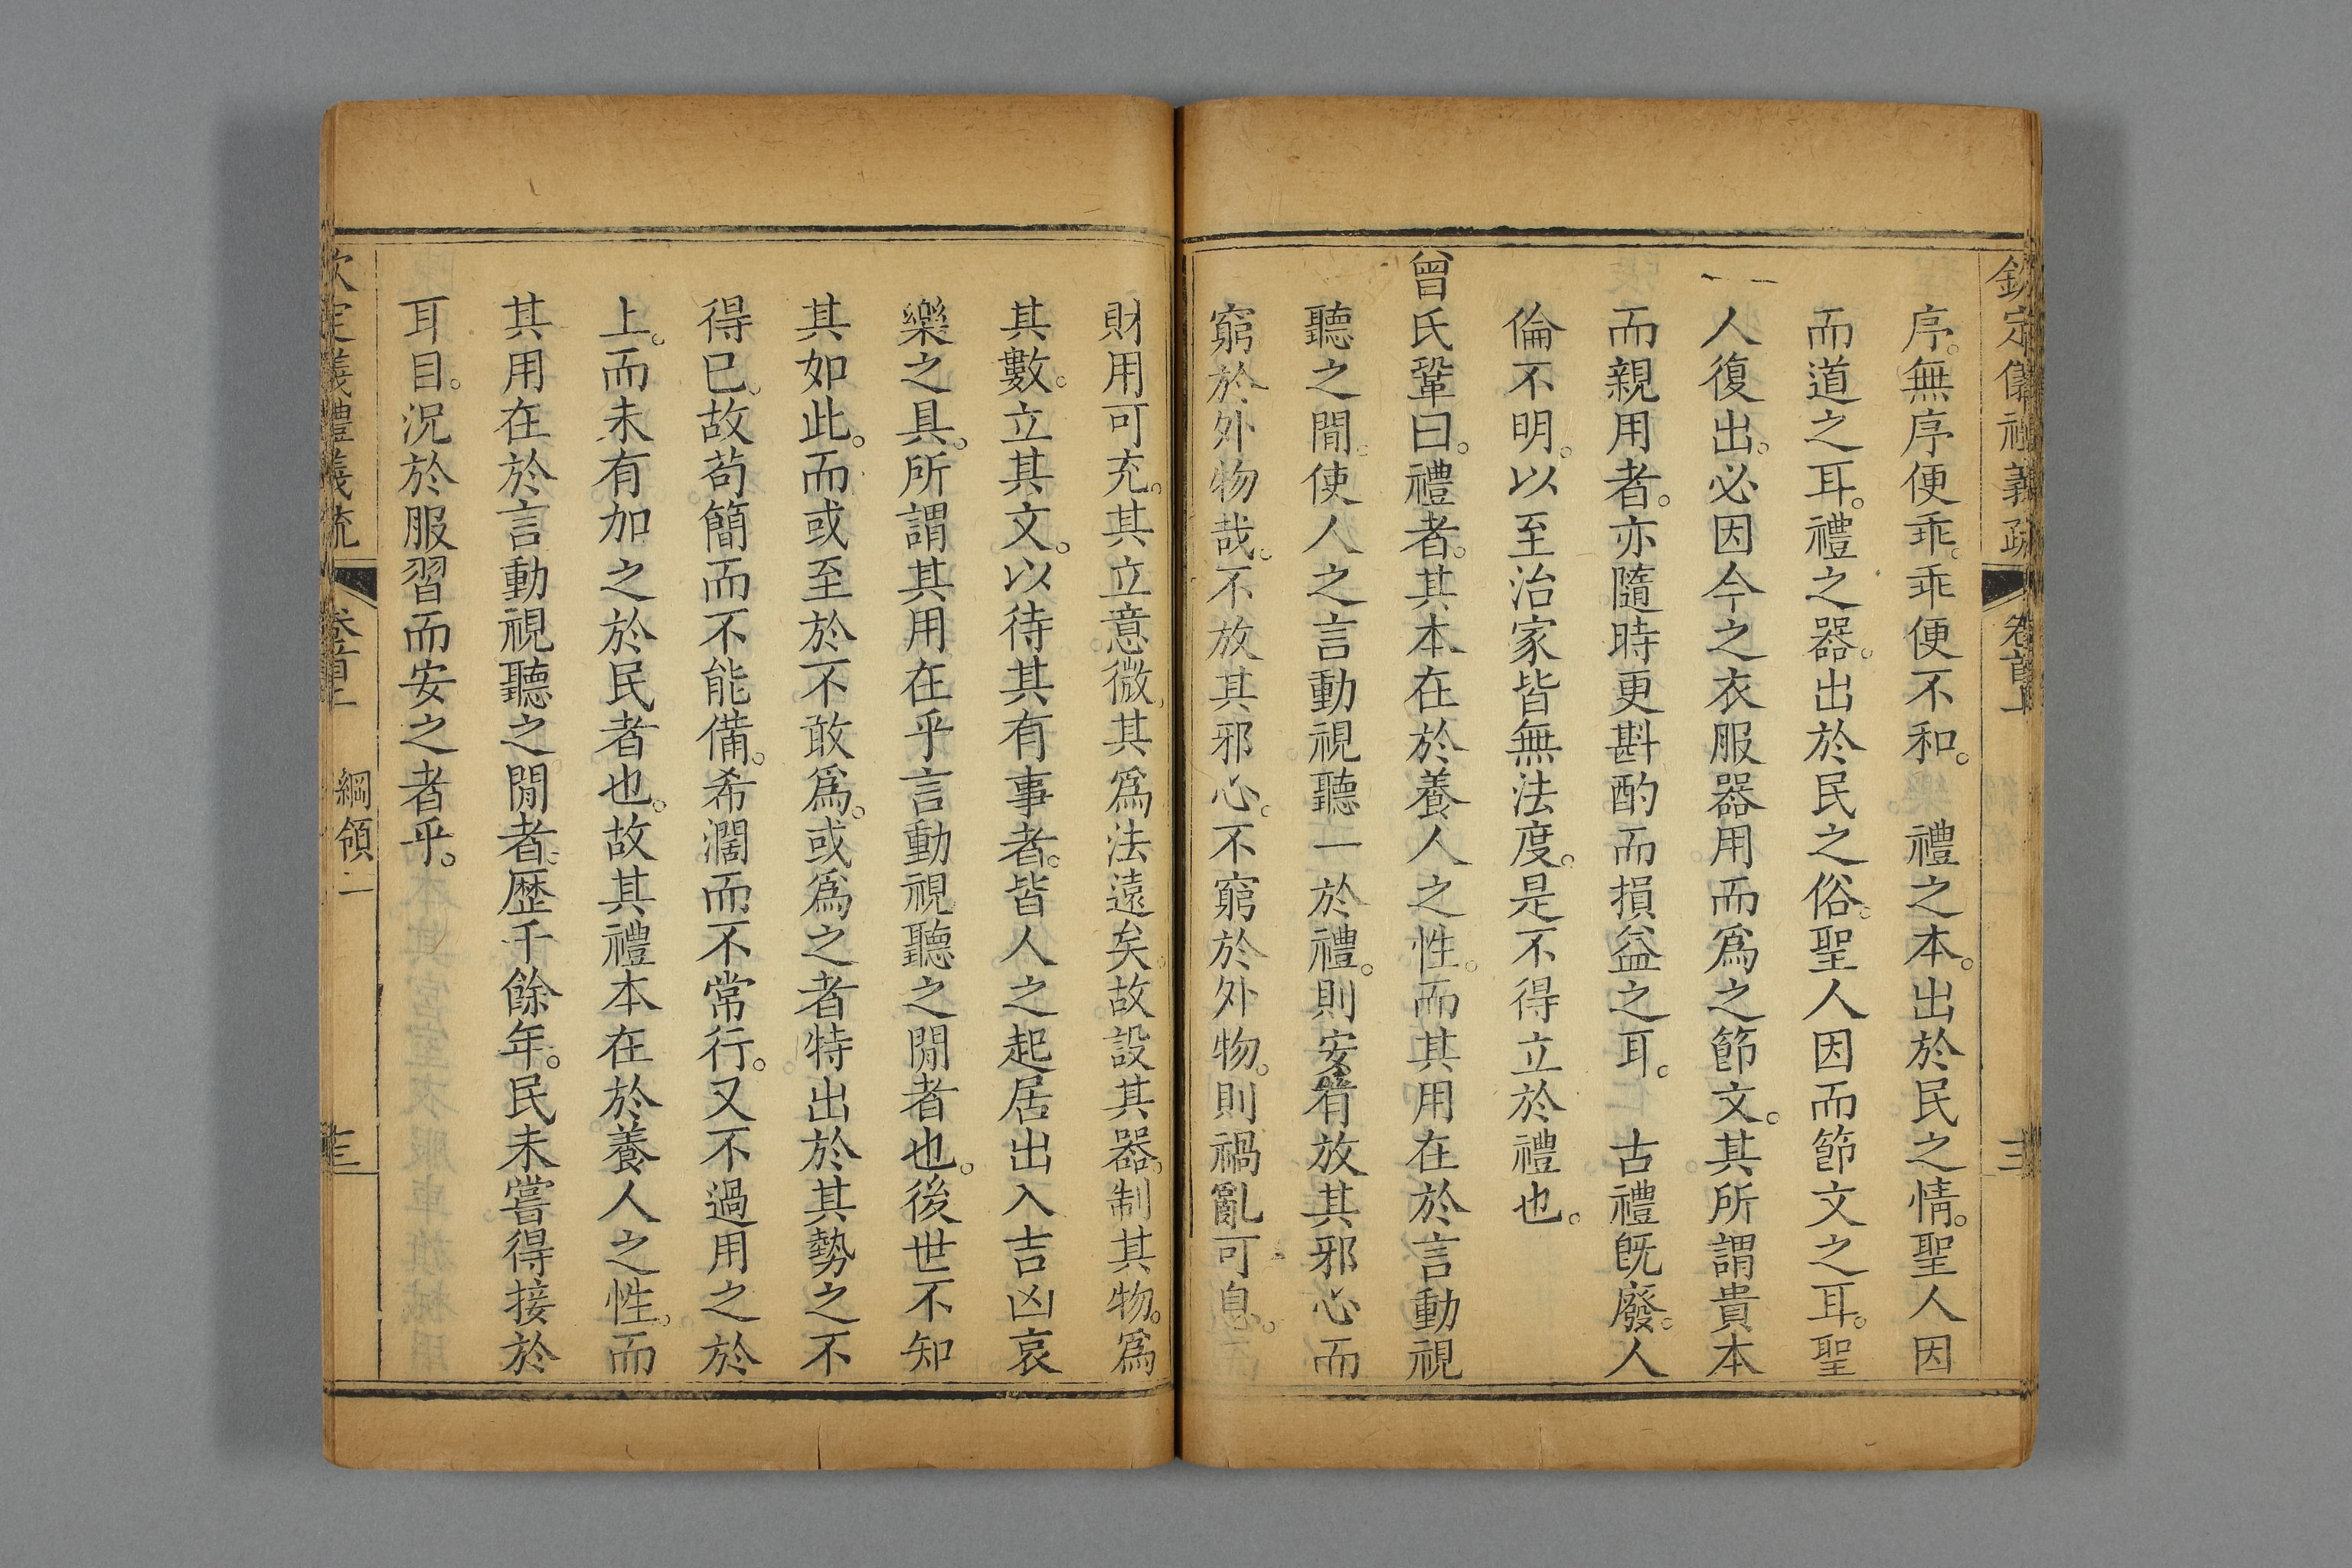 欽定儀禮義疏 卷首上 三
序。無序便乖。乖便不和。　禮之本。出於民之情。聖人因
而道之耳。禮之器。出於民之俗。聖人因而節文之耳。聖
人復出。必因今之衣服器用而爲之節文。其所謂貴本
而親用者。亦隨時更斟酌而損益之耳。　古禮旣廢。人
倫不明。以至治家皆無法度。是不得立於禮也。
曾氏鞏曰。禮者。其本在於養人之性。而其用在於言動視
聽之閒。使人之言動視聽一於禮。則安有放其邪心而
窮於外物哉。不放其邪心。不窮於外物。則禍亂可息。
財用可充。其立意微。其爲法遠矣。故設其器。制其物。爲
其數。立其文。以待其有事者。皆人之起居出入吉凶哀
樂之具。所謂其用在乎言動視聽之閒者也。後世不知
其如此。而或至於不敢爲。或爲之者特出於其勢之不
得已。故苟簡而不能備。希濶而不常行。又不過用之於
上。而未有加之於民者也。故其禮本在於養人之性。而
其用在於言動視聽之閒者。歷千餘年。民未嘗得接於
耳目。況於服習而安之者乎。
欽定儀禮義疏 卷首上 綱領二 三